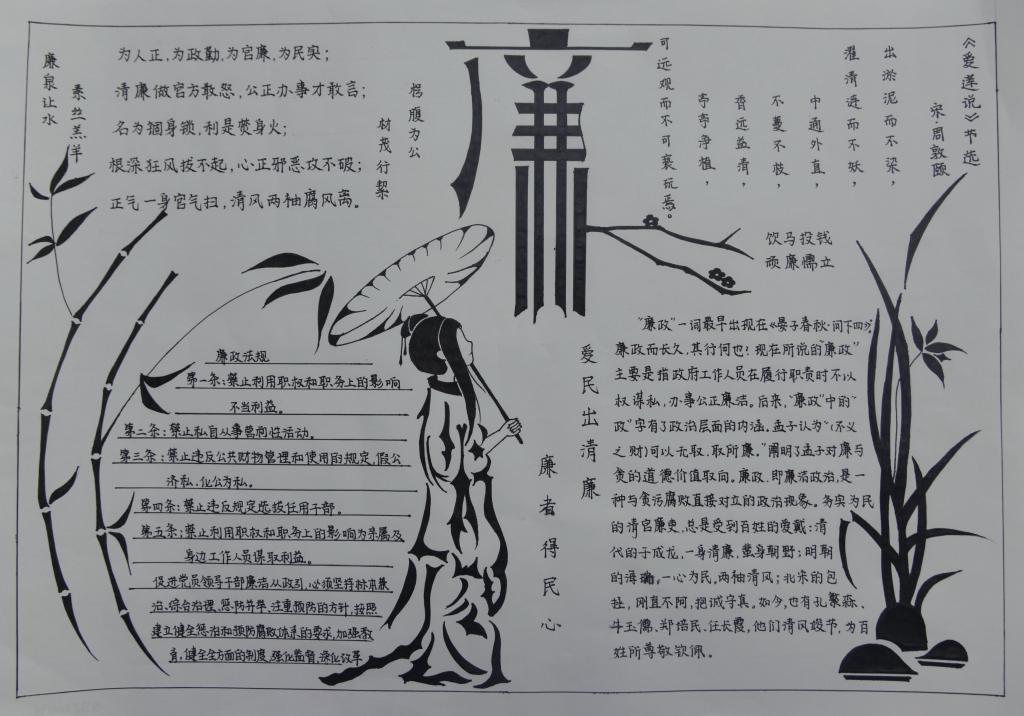 廉泉让水
素丝羔羊
为人正,为政勤,为官廉,为民实;
清廉做官方敢怒,公正办事才敢言;
名为锢身锁,利是焚身火;
根深狂风拔不起,心正邪恶攻不破;
正气一身官气扫,清风两袖腐风离。
楞腹为公
材茂行絜
廉
《爱莲说》节选
宋·周敦颐
出淤泥而不染,
濯清涟而不妖,
中通外直,
不蔓不枝,
香远益清,
亭亭净植,
可远观而不可亵玩焉。
饮马投钱
顽廉懦立
廉政法规
第一条:禁止利用职权和职务上的影响
不当利益。
第二条:禁止私自从事营利性活动。
第三条:禁止违反公共财物管理和使用的规定,假公
济私、化公为私。
第四条:禁止违反规定选拔任用干部。
第五条:禁止利用职权和职务上的影响为亲属及
身边工作人员谋取利益。
促进党员领导干部廉洁从政引,必须坚持标本兼
治、综合治理、惩防并举、注重预防的方针,按照
建立健全惩治和预防腐败体系的要求,加强教
育,健全全方面的制度,强化监督,深化改革
爱民出清廉
廉者得民心
“廉政”一词最早出现在《晏子春秋·问下四》:
廉政而长久,其行何也?现在所说的“廉政”
主要是指政府工作人员在履行职责时不以
权谋私,办事公正廉洁。后来,“廉政”中的“
政”字有了政治层面的内涵。孟子认为“(不义
之财)可以无取,取所廉。”阐明了孟子对廉与
贪的道德价值取向。廉政,即廉洁政治,是一
种与贪污腐败直接对立的政治现象。务实为民
的清官廉吏,总是受到百姓的爱戴:清
代的于成龙,一身清廉,蜚身朝野;明朝
的海瑞,一心为民,两袖清风;北宋的包
拯,刚直不阿,把诚守真。如今,也有孔繁森、
牛玉儒、郑培民、任长霞,他们清风峻节,为百
姓所尊敬钦佩。